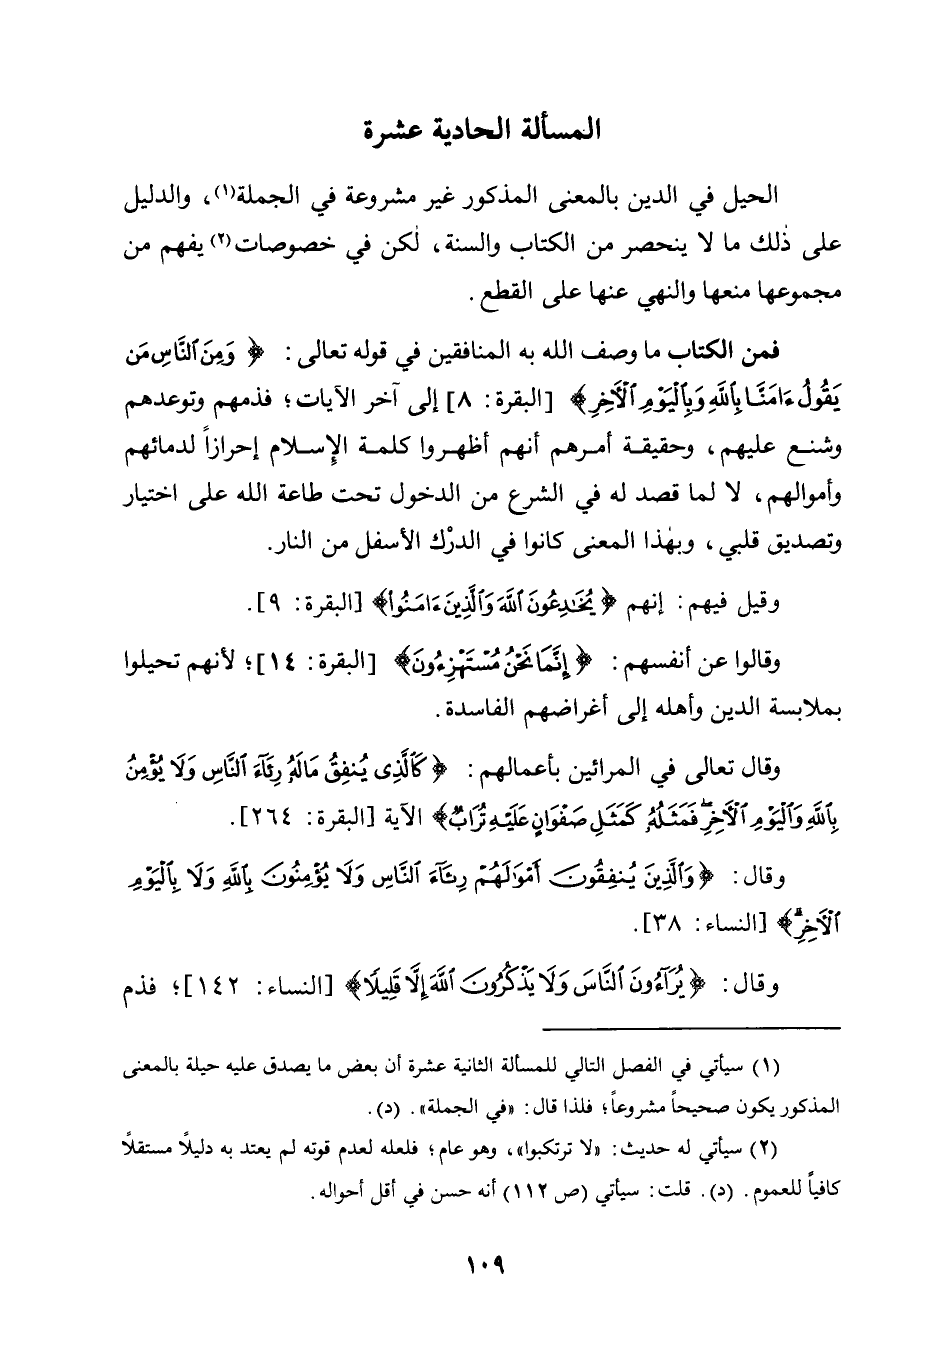 المسألة الحادية عشرة
الحيل في الدين بالمعنى المذكور غير مشروعة في الجملة(١)، والدليل
على ذٰلك ما لا ينحصر من الكتاب والسنة، لٰكن في خصوصات(٢) يفهم من
مجموعها منعها والنهي عنها على القطع.
فمن الكتاب ما وصف الله به المنافقين في قوله تعالى: ﴿وَمِنَ ٱلنَّاسِ مَن
يَقُولُ ءَامَنَّا بِٱللَّهِ وَبِٱلْيَوْمِ ٱلْأَخِرِ﴾ [البقرة: ٨] إلى آخر الآيات؛ فذمهم وتوعدهم
وشنع عليهم، وحقيقة أمرهم أنهم أظهروا كلمة الإسلام إحرازاً لدمائهم
وأموالهم، لا لما قصد له في الشرع من الدخول تحت طاعة الله على اختيار
وتصديق قلبي، وبهٰذا المعنى كانوا في الدرْك الأسفل من النار.
وقيل فيهم: إنهم ﴿يُخَٰدِعُونَ ٱللَّهَ وَٱلَّذِينَ ءَامَنُوا۟﴾ [البقرة: ٩].
وقالوا عن أنفسهم: ﴿إِنَّمَا نَحْنُ مُسْتَهْزِءُونَ﴾ [البقرة: ١٤]؛ لأنهم تحيلوا
بملابسة الدين وأهله إلى أغراضهم الفاسدة.
وقال تعالى في المرائين بأعمالهم: ﴿كَٱلَّذِى يُنفِقُ مَالَهُۥ رِئَآءَ ٱلنَّاسِ وَلَا يُؤْمِنُ
بِٱللَّهِ وَٱلْيَوْمِ ٱلْأَخِرِ ۖ فَمَثَلُهُۥ كَمَثَلِ صَفْوَانٍ عَلَيْهِ تُرَابٌ﴾ الآية [البقرة: ٢٦٤].
وقال: ﴿وَٱلَّذِينَ يُنفِقُونَ أَمْوَٰلَهُمْ رِئَآءَ ٱلنَّاسِ وَلَا يُؤْمِنُونَ بِٱللَّهِ وَلَا بِٱلْيَوْمِ
ٱلْأَخِرِ ۗ﴾ [النساء: ٣٨].
وقال: ﴿يُرَآءُونَ ٱلنَّاسَ وَلَا يَذْكُرُونَ ٱللَّهَ إِلَّا قَلِيلًا﴾ [النساء: ١٤٢]؛ فذم
(١) سيأتي في الفصل التالي للمسألة الثانية عشرة أن بعض ما يصدق عليه حيلة بالمعنى
المذكور يكون صحيحاً مشروعاً؛ فلذا قال: «في الجملة». (د).
(٢) سيأتي له حديث: «لا ترتكبوا»، وهو عام؛ فلعله لعدم قوته لم يعتد به دليلًا مستقلًا
كافياً للعموم. (د). قلت: سيأتي (ص ١١٢) أنه حسن في أقل أحواله.
١٠٩